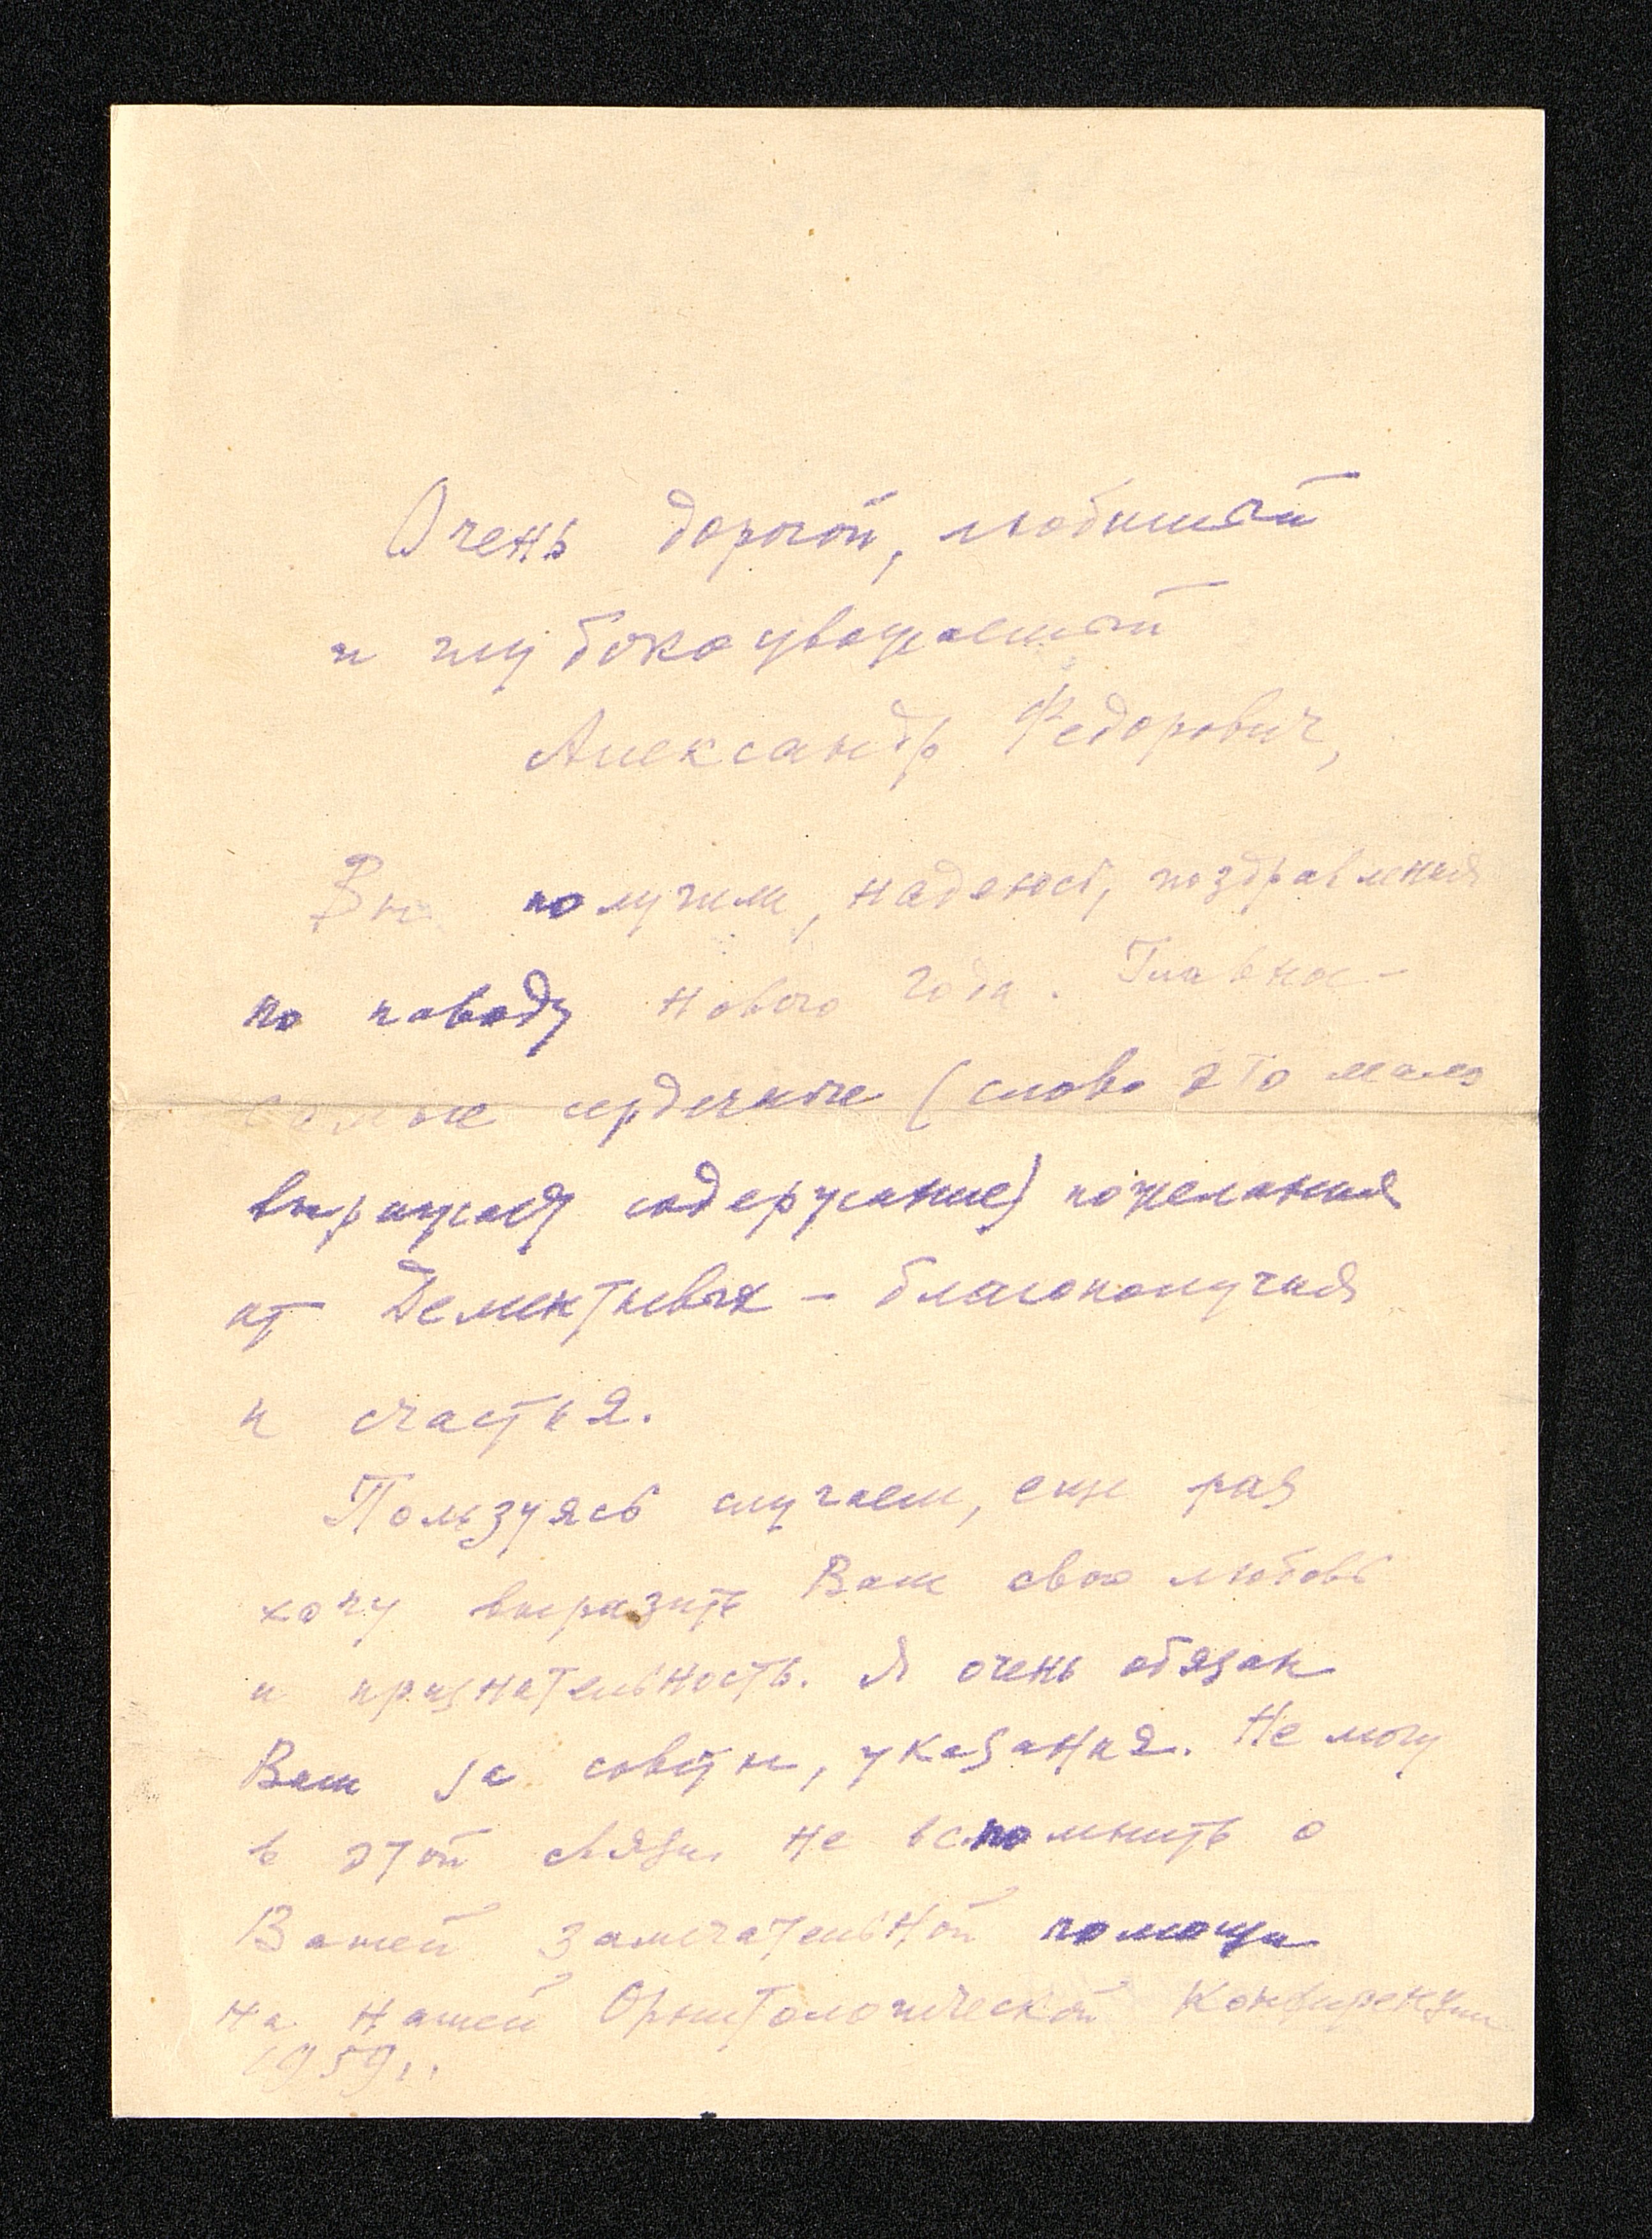 Очень дорогой, любимый
и глубокоуважаемый
Александр Федорович,
Вы получили, надеюсь, поздравления
по поводу Нового Года. Главное –
самые сердечные (слово это мало
выражает содержание) пожелания
от Дементьевых – благополучия
и счастья.
Пользуясь случаем, еще раз
хочу выразить Вам свою любовь
и признательность. Я очень обязан
Вам за советы, указания. Не могу
в этой связи не вспомнить о
Вашей замечательной помощи
на нашей Орнитологической Конференции
1959 г.